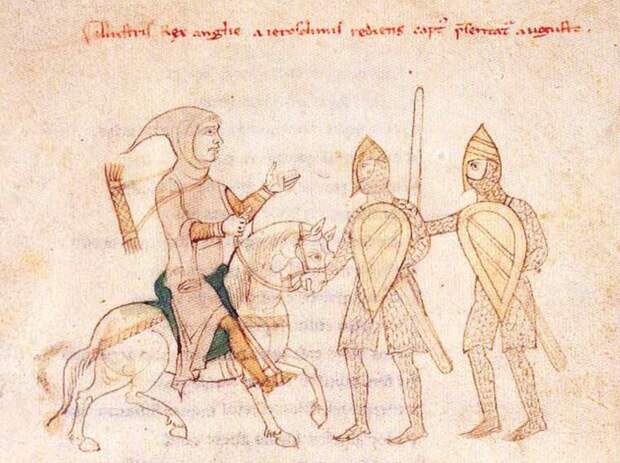 Illustris Rex anglie a ierosolimis rediens capt' p̄sentat' augusto.